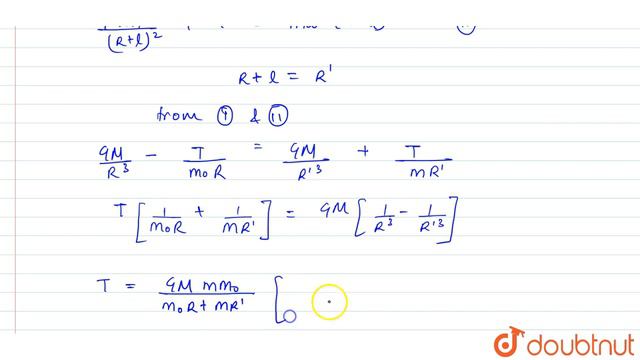 (R+l)²
R + l = R'
from ⑨ & ⑪
GM/R³ - T/m₀R = GM/R'³ + T/mR'
T [ 1/m₀R + 1/mR' ] = GM [ 1/R³ - 1/R'³ ]
T = GM mm₀/m₀R + mR' [
doubtnut